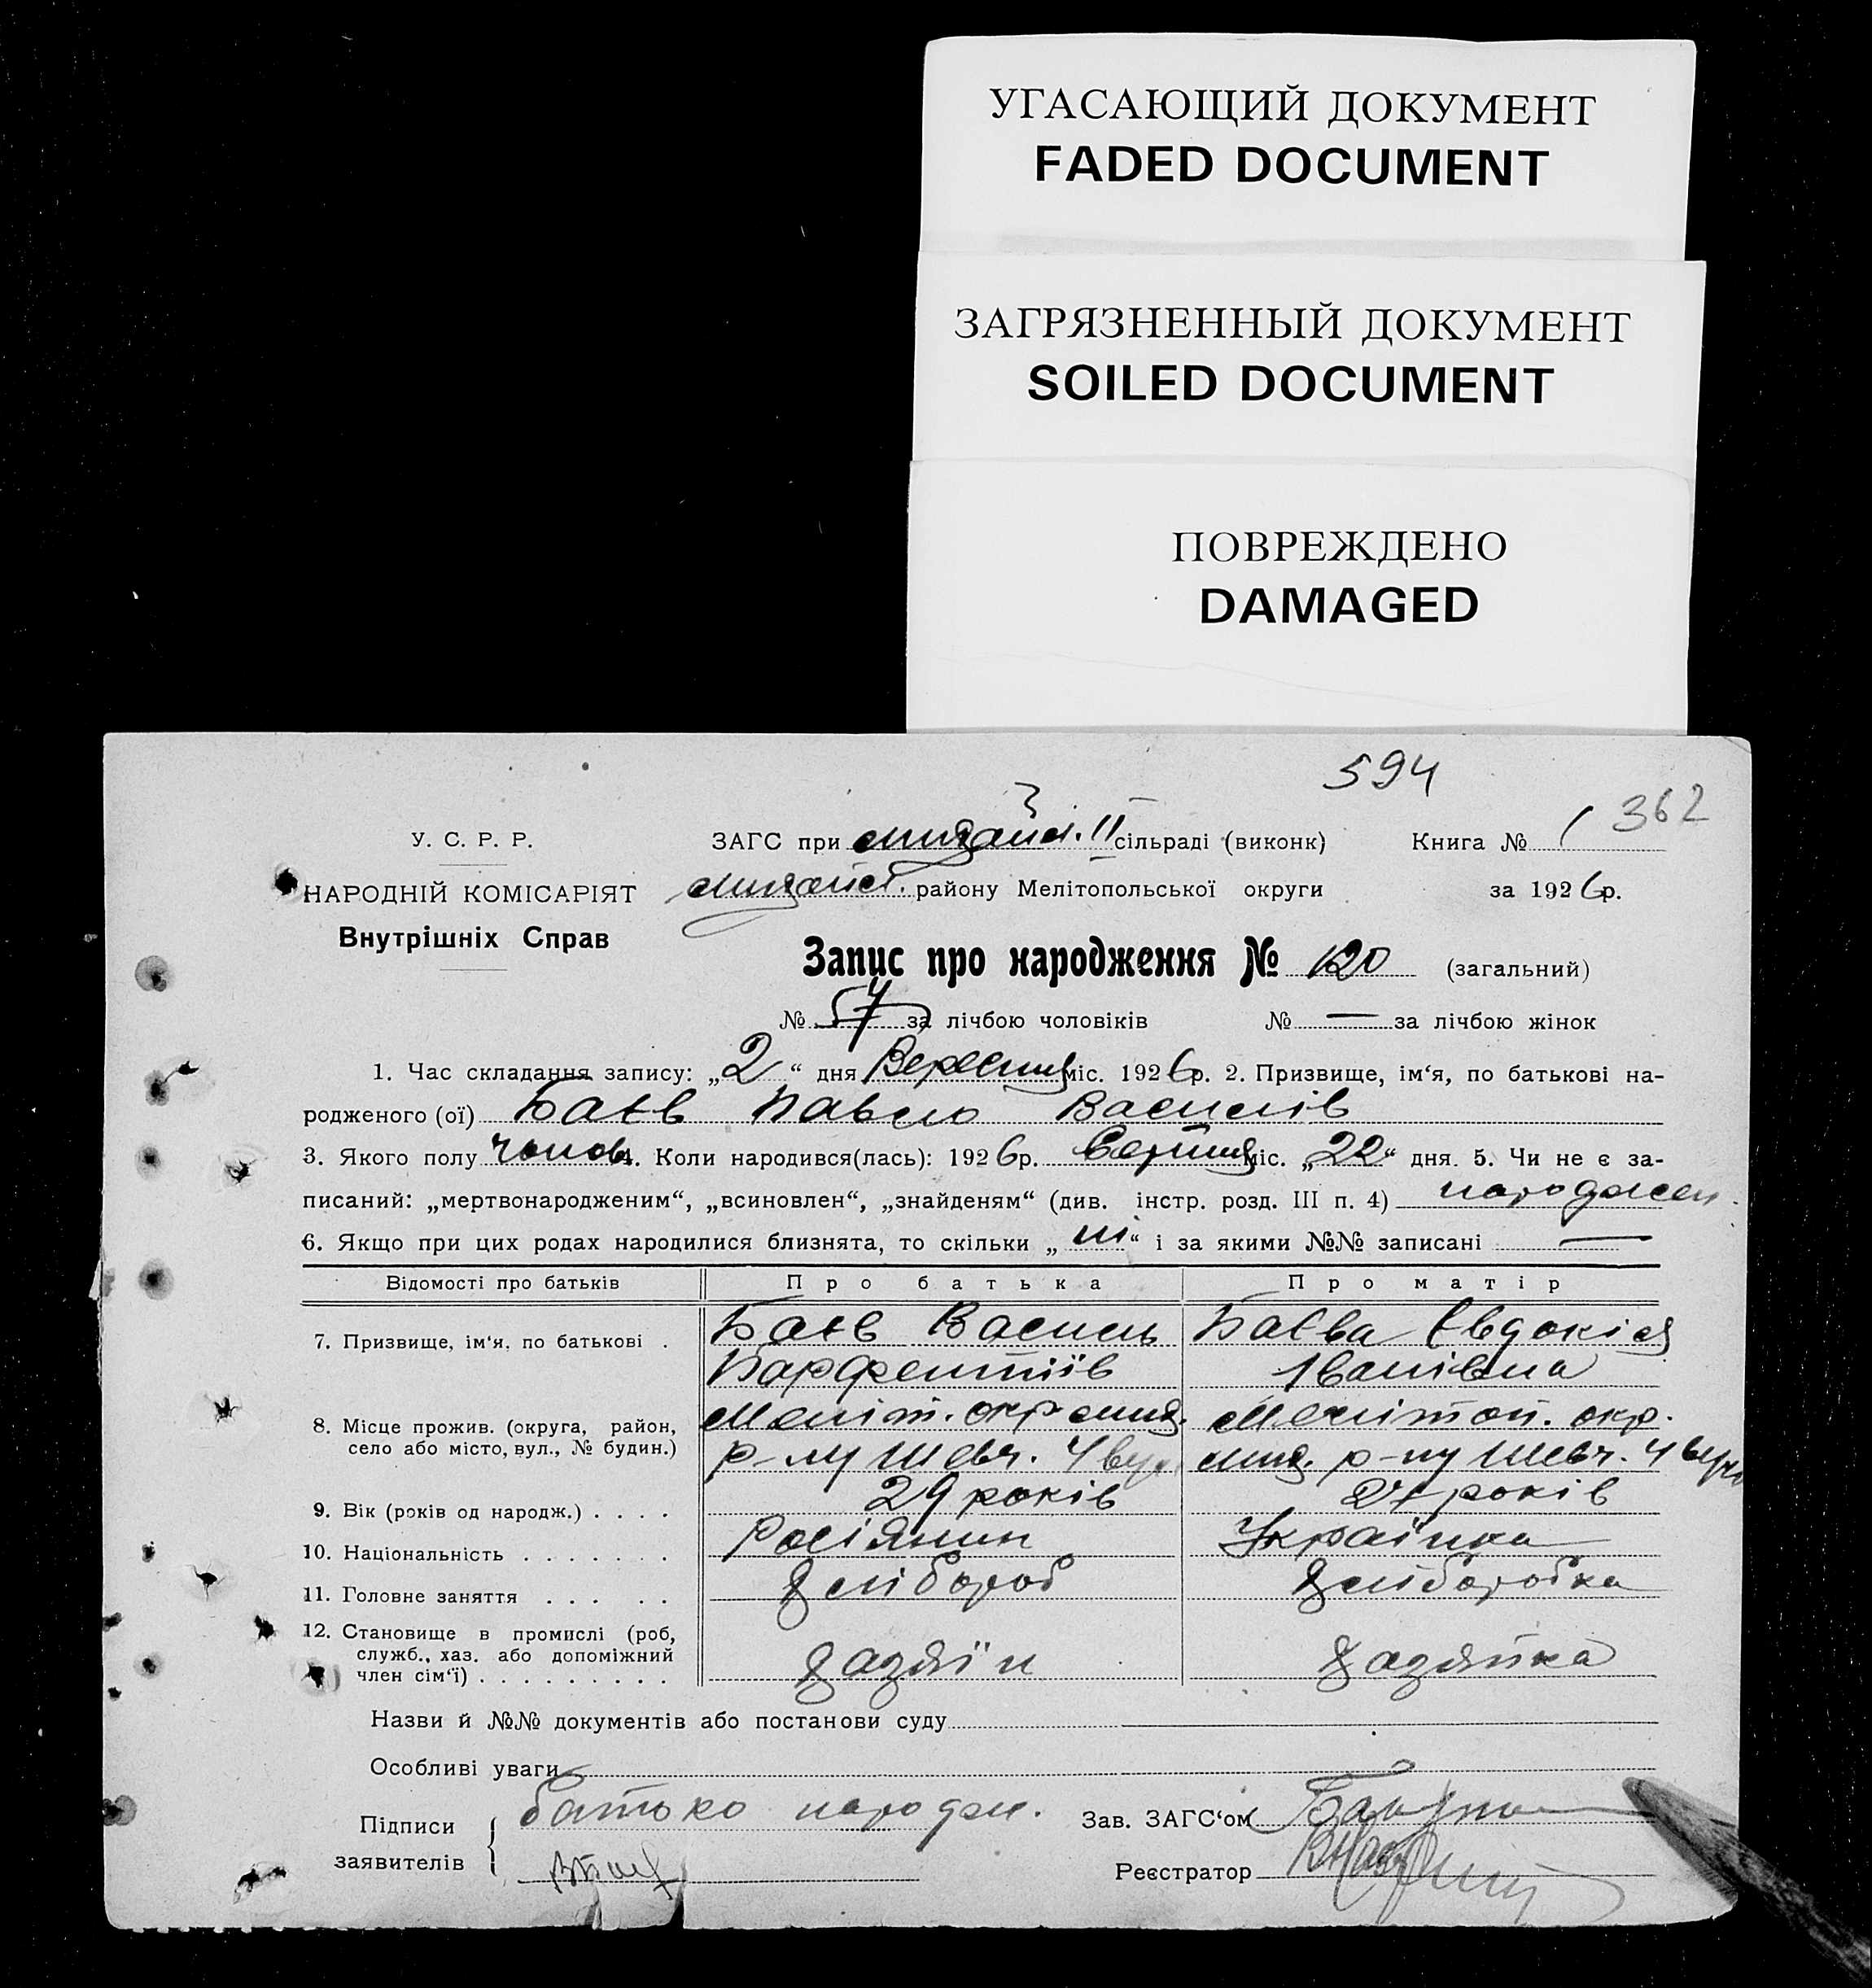 УГАСАЮЩИЙ ДОКУМЕНТ
FADED DOCUMENT
ЗАГРЯЗНЕННЫЙ ДОКУМЕНТ
SOILED DOCUMENT
ПОВРЕЖДЕНО
DAMAGED
594
362
У. С. Р. Р.
ЗАГС при II сільраді (виконк) Книга № 1
НАРОДНІЙ КОМІСАРІЯТ
району Мелітопольської округи за 1926 р.
Внутрішніх Справ
Запис про народження № 120 (загальний)
№ 57 за лічбою чоловіків № — за лічбою жінок
1. Час складання запису: „2“ дня Вересня міс. 1926 р. 2. Призвище, ім‘я, по батькові на-
родженого (ої) Баєв Павло Василів
3. Якого полу чолов. 4. Коли народився(лась): 1926 р. Серпня міс. „22“ дня. 5. Чи не є за-
писаний: „мертвонародженим“, „всиновлен“, „знайденям“ (див. інстр. розд. III п. 4) народжен.
6. Якщо при цих родах народилися близнята, то скільки „ні“ і за якими №№ записані —
Відомості про батьків Про батька Про матір
7. Призвище, ім‘я, по батькові . Баєв Василь Баєва Євдокія
Парфентіїв Іванівна
8. Місце прожив. (округа, район, Меліт. окр Мелітоп. окр.
село або місто, вул., № будин.) р-ну Шевч. 4 вул. р-ну Шевч. 4 вул.
9. Вік (років од народж.) . . . . 29 років 27 років
10. Національність . . . . . . . Росіянин Українка
11. Головне заняття . . . . . Хлібороб Хліборобка
12. Становище в промислі (роб,
служб., хаз. або допоміжний
член сім‘ї) . . . . . . . . . Хазяїн Хазяйка
Назви й №№ документів або постанови суду
Особливі уваги
Підписи батько народж. Зав. ЗАГС‘ом
заявителів
Реєстратор